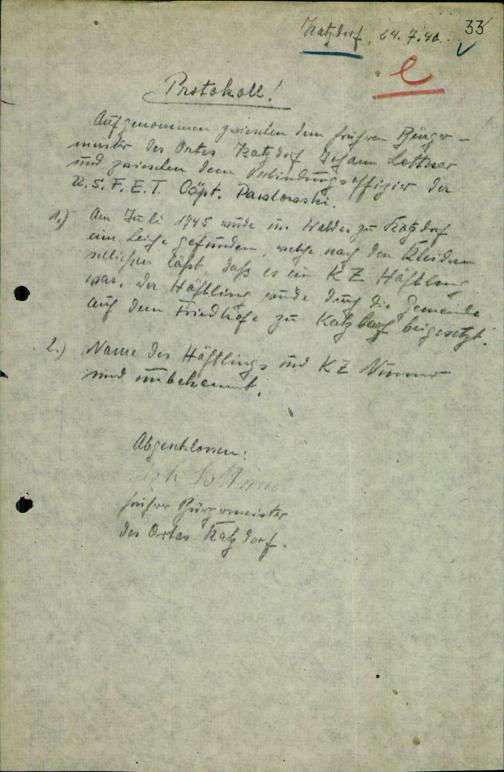 33
Katzdorf, 24.7.46.
e
Protokoll!
Aufgenommen zwischen dem frühren Bürger-
meister des Ortes Katzdorf Johann Lotterer
und zwischen dem Verbindungsoffizier der
U.S.F.E.T. Capt. Pawlowski.
1.) Am Juli 1945 wurde im Walde zu Katzdorf
eine Leiche gefunden, welche nach den Kleidern
schließen läßt, daß es ein KZ Häftling
war. Der Häftling wurde durch die Gemeinde
auf dem Friedhofe zu Katzdorf beigesetzt.
2.) Name des Häftlings und KZ Nummer
sind unbekannt.
Abgeschlossen:
früher Bürgermeister
des Ortes Katzdorf.